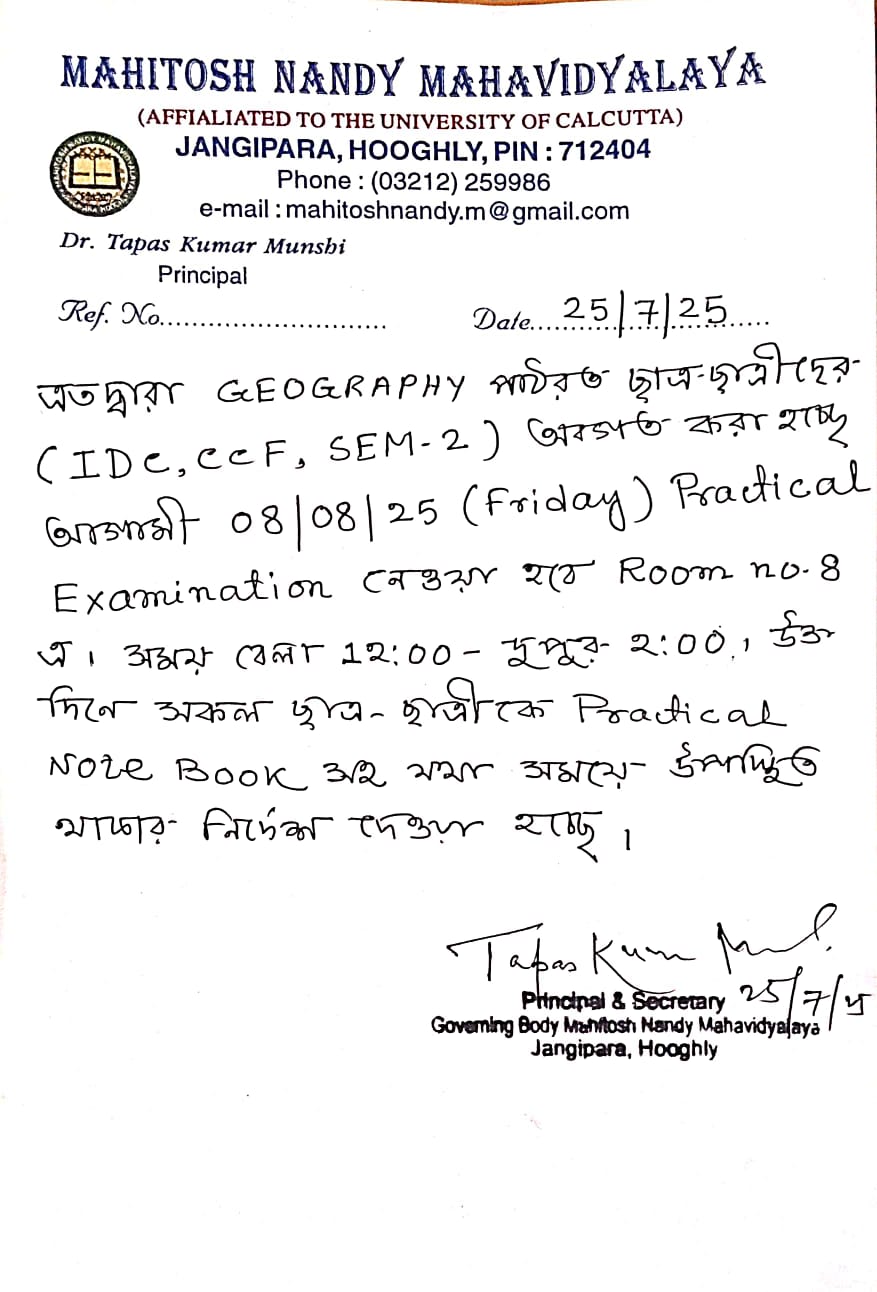 MAHITOSH NANDY MAHAVIDYALAYA
(AFFIALIATED TO THE UNIVERSITY OF CALCUTTA)
JANGIPARA, HOOGHLY, PIN : 712404
Phone : (03212) 259986
e-mail : mahitoshnandy.m@gmail.com
Dr. Tapas Kumar Munshi
Principal
Ref. No............................
Date....25/7/25.....
এতদ্বারা GEOGRAPHY পাঠরত ছাত্র-ছাত্রীদের
(IDC, CCF, SEM-2) অবগত করা হচ্ছে
আগামী 08/08/25 (Friday) Practical
Examination নেওয়া হবে Room no. 8
এ। সময় বেলা 12:00 - দুপুর 2:00। উক্ত
দিনে সকল ছাত্র-ছাত্রীকে Practical
Note Book সহ যথা সময়ে উপস্থিত
থাকার নির্দেশ দেওয়া হচ্ছে।
Tapas Kum
Principal & Secretary 25/7/25
Governing Body Mahitosh Nandy Mahavidyalaya
Jangipara, Hooghly